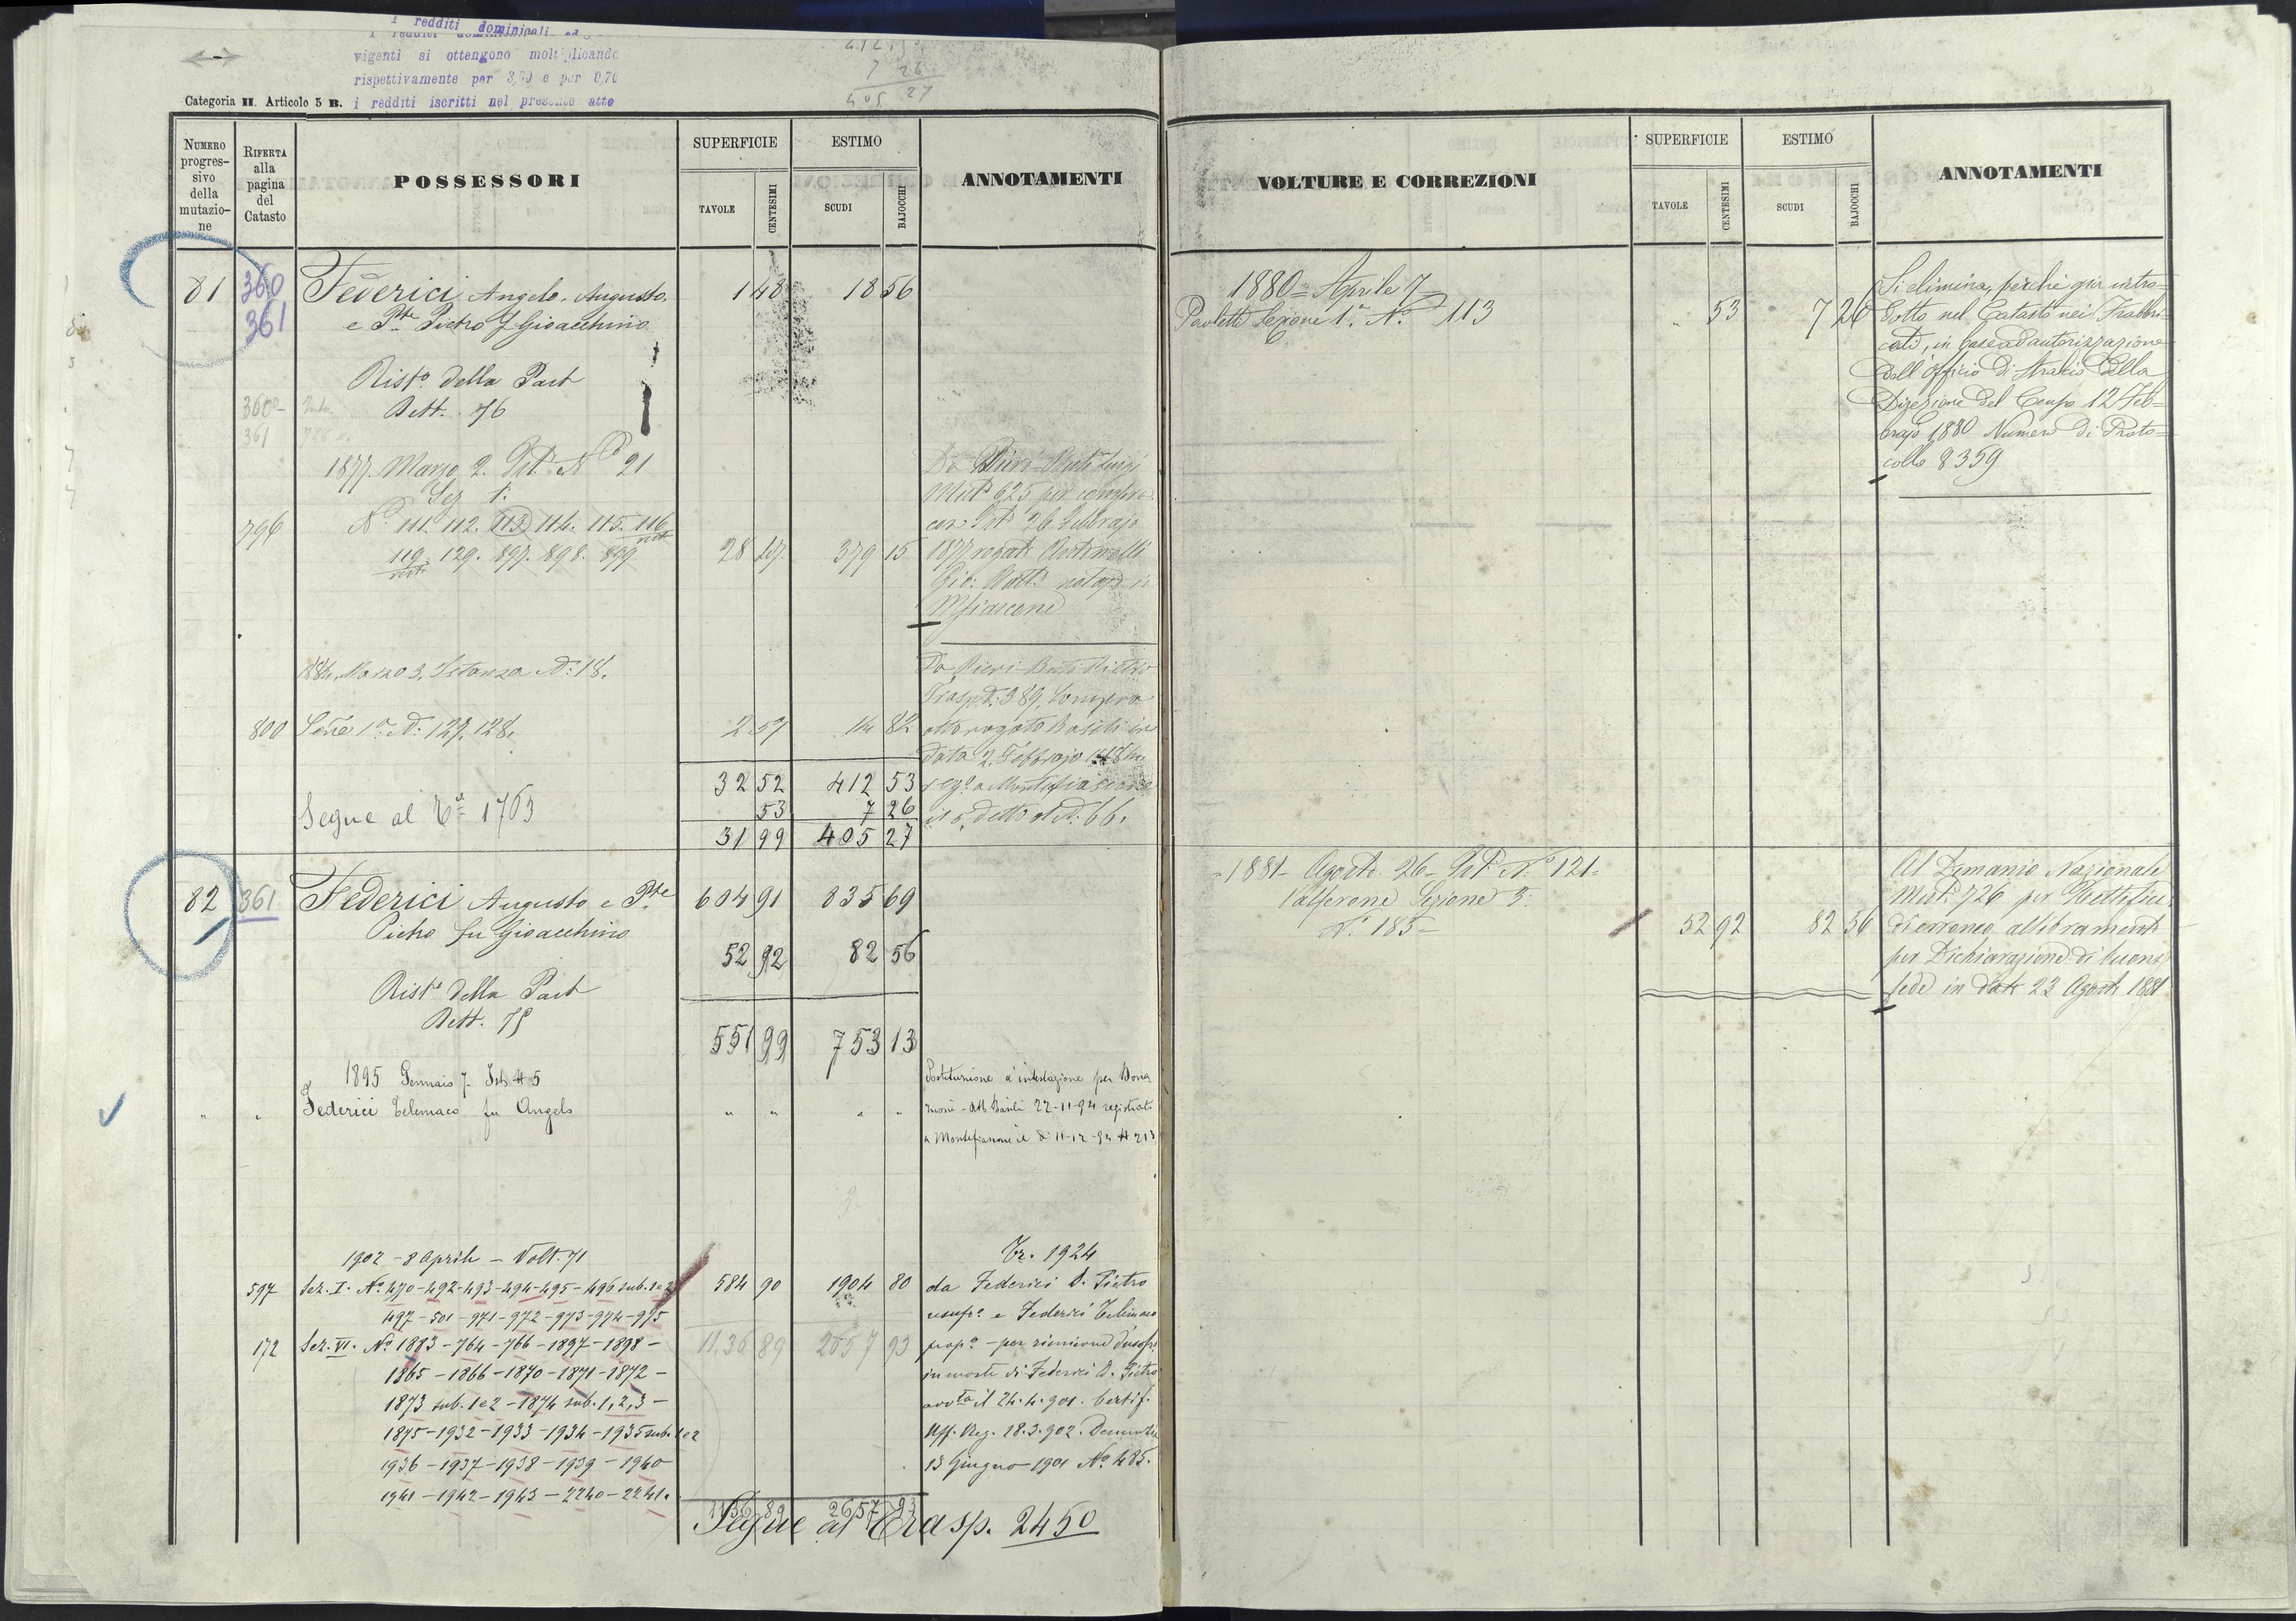 I redditi dominicali ed
vigenti si ottengono moltiplicando
rispettivamente per 3,70 e per 0,70
i redditi iscritti nel presente atto
Categoria II. Articolo 5 B.
7 26
405 27
NUMERO progressivo della mutazione
RIFERTA alla pagina del Catasto
POSSESSORI
SUPERFICIE
TAVOLE
CENTESIMI
ESTIMO
SCUDI
BAJOCCHI
ANNOTAMENTI
81 360 Federici Angelo, Augusto, 1 48 18 56
361 e Pte Pietro f Gioacchino
Risto della Part
360 Dett. 76
361
1877. Marzo 2. Pet. No 21
Sez 1.
796 N. 111. 112. 113. 114. 115. 116
119. 129. 897. 898. 899 28 47 379 15
Da Pieri Buti Luigi
Mut. 625 per compra
con Ist 26 Febbrajo
1877 rogato Antonelli
Gio: Batt. notajo in
Mfiascone
Marzo 3. Istanza N: 18.
800 Sene 1a N: 127. 128. 2 57 14 82
Da Pieri Buti Pietro
Trasp. 389, Compera
atto rogato Basili in
data 2 Febbrajo
reg. a Montefiascone
il 5 detto al N. 66.
32 52 412 53
53 7 26
31 99 405 27
Segue al Ta 1763
82 361 Federici Augusto e Pte 604 91 835 69
Pietro fu Gioacchino
52 92 82 56
Risto della Part
Dett. 75
551 99 753 13
1895 Gennaio 7 Ist. N 5
" " Federici Telemaco fu Angelo " " " "
Costituzione d'intestazione per Dona
zione - Atto Basili 22-11-94 registrato
a Montefiascone il dì 11-12-94 N 213
1902 - 8 Aprile - Volt. 71
597 Sez. I. No 470-492-493-494-495-496 sub. 1e2 584 90 1904 80
497-501-971-972-973-974-975
172 Sez. VI. No 1883-764-766-1897-1898- 1136 89 2657 93
1865-1866-1870-1871-1872-
1873 sub. 1e2-1874 sub. 1, 2, 3-
1875-1932-1933-1934-1935 sub. 1e2
1936-1937-1938-1939-1940-
1941-1942-1943-2240-2241.
Tr. 1924
da Federici D. Pietro
usufro e Federici Telemaco
propo - per riunione d'usufro
in morte di Federici D. Pietro
avvta il 24.4.901. Certif.
Uff. Reg. 18.3.902. Denunzia
13 Giugno 1901 No 485.
1136 89 2657 93
Segue al Trasp. 2450
VOLTURE E CORREZIONI
SUPERFICIE
TAVOLE
CENTESIMI
ESTIMO
SCUDI
BAJOCCHI
ANNOTAMENTI
1880 = Aprile 7
Paoletti Sezione 1a No 113 " 53 7 26
Si elimina, perchè già intro=
dotto nel Catasto nei Fabbri=
cati, in base ad autorizzazione
dell'Officio di Stralcio della
Direzione del Censo 12 Feb=
brajo 1880 Numero di Proto=
collo 8359
=1881- Agosto 26- Pet. No 121=
Valferone Sezione 3.
N. 185- 52 92 82 56
Al Demanio Nazionale
Mut. 726 per Rettifica
di erroneo allibramento
per Dichiarazione di buona
fede in data 23 Agosto 1881